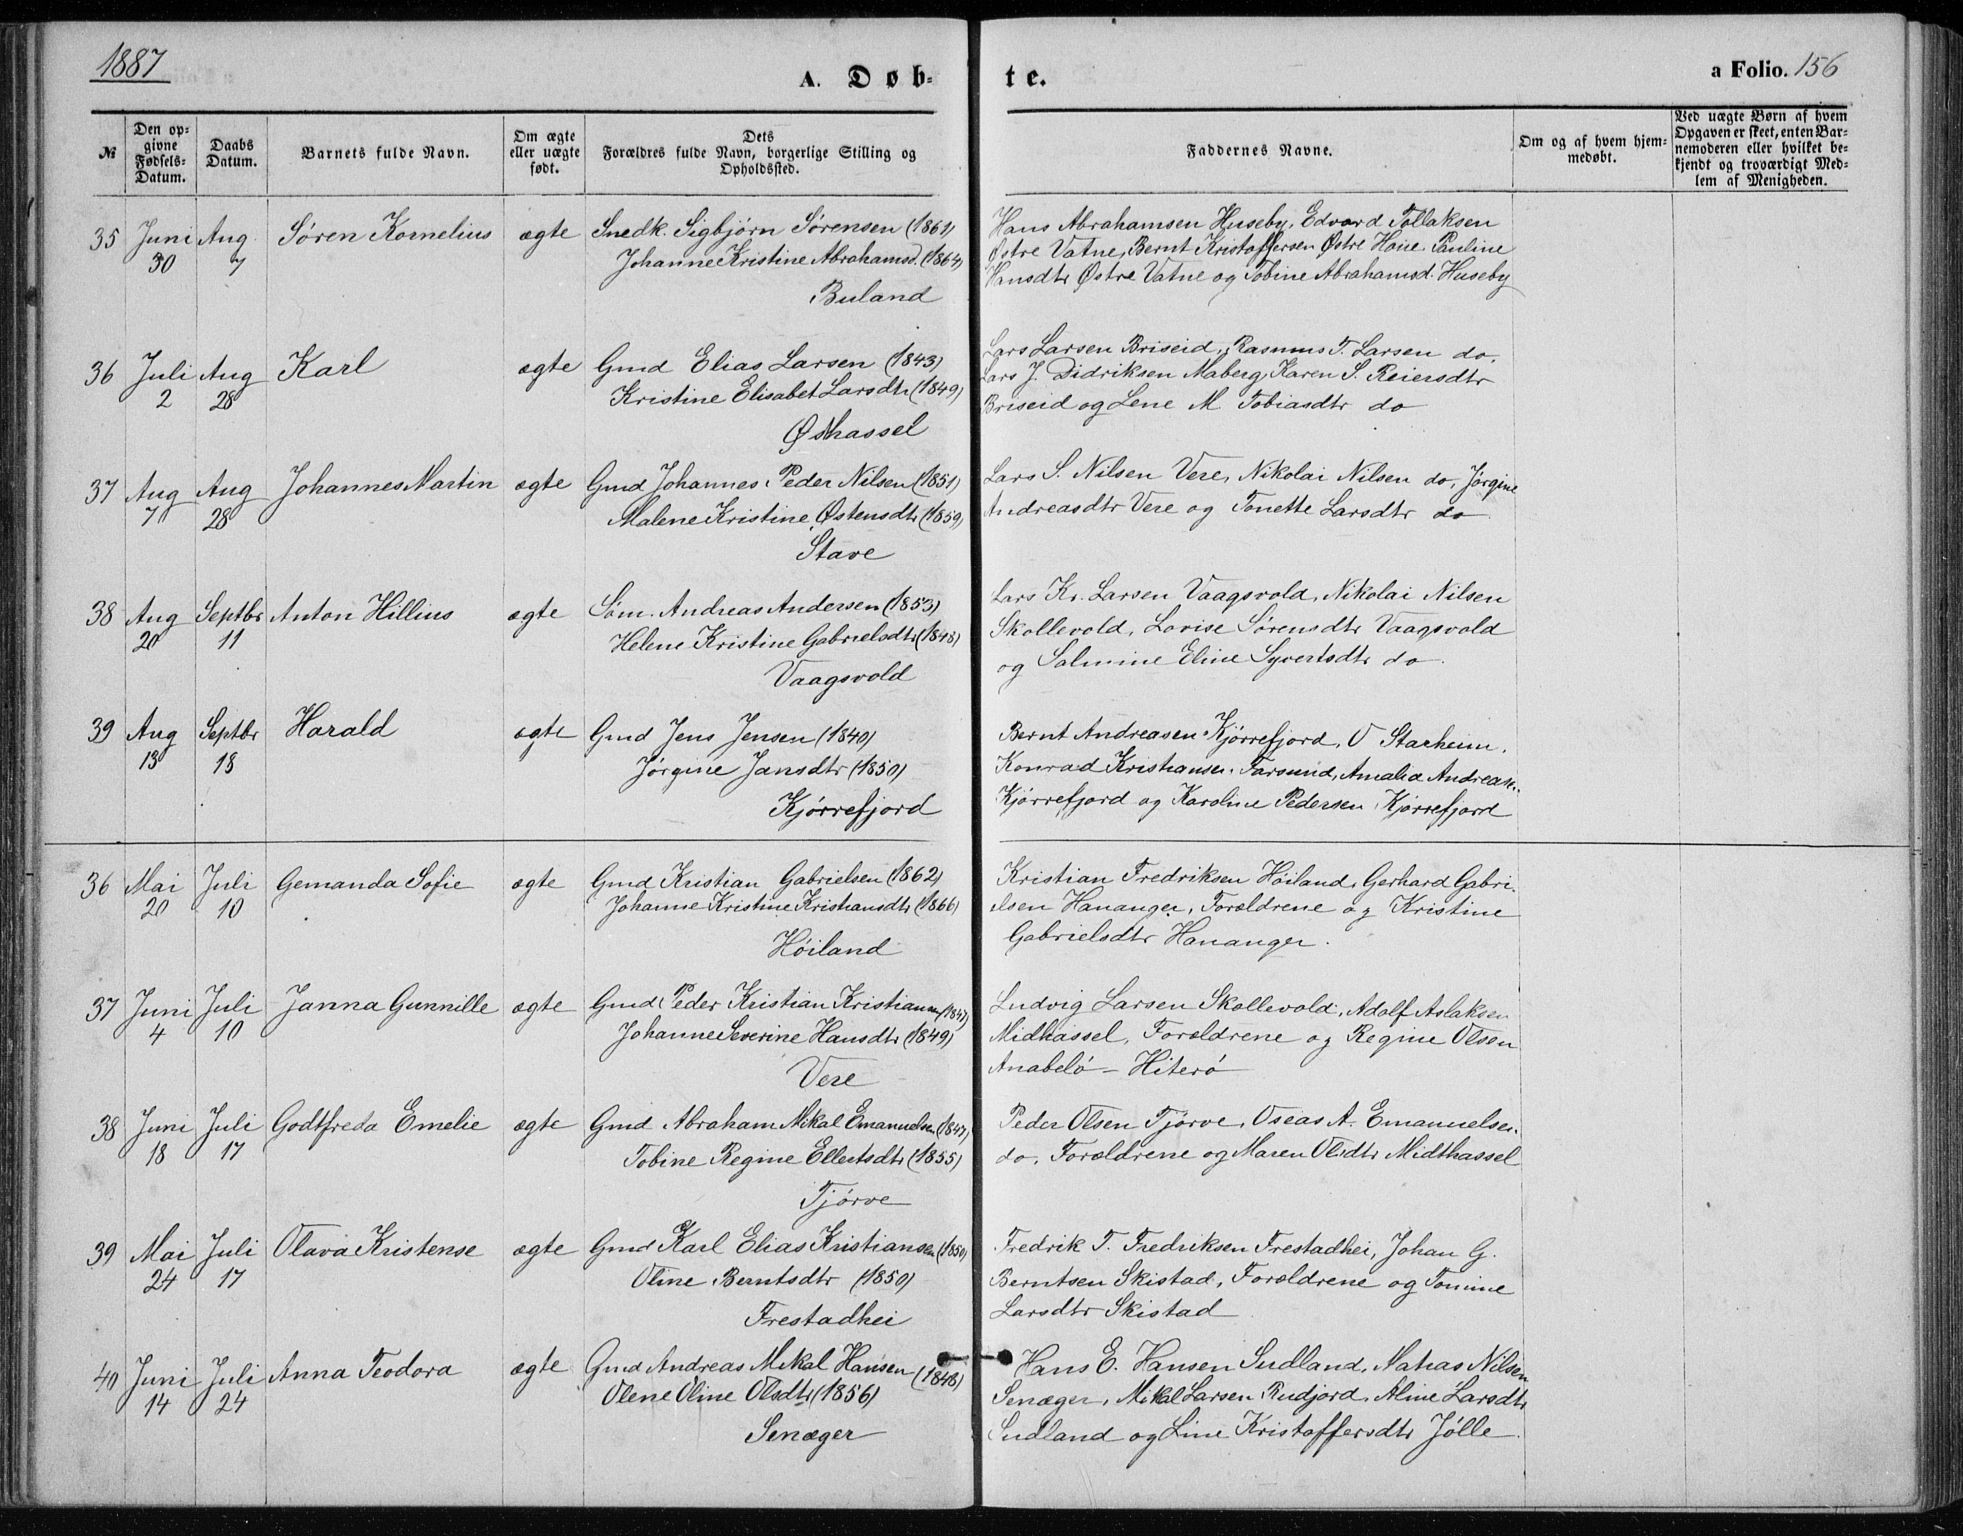 1887
A. Døb-
te.
a Folio. 156
№
Den op-
givne
Fødsels-
Datum.
Daabs
Datum.
Barnets fulde Navn.
Om ægte
eller uægte
født.
Dets
Forældres fulde Navn, borgerlige Stilling og
Opholdssted.
Faddernes Navne.
Om og af hvem hjem-
medøbt.
Ved uægte Børn af hvem
Opgaven er skeet, enten Bar-
nemoderen eller hvilket be-
kjendt og troværdigt Med-
lem af Menigheden.
35 Juni Aug Søren Kornelius ægte Snedk. Sigbjørn Sørensen (1861)
30 7 Johanne Kristine Abrahamsd. (1864)
Buland
Hans Abrahamsen Huseby, Edvard Tollaksen
Østre Vatne, Bernt Kristoffersen Østre Haue, Pauline
Hansdtr Østre Vatne og Tobine Abrahamsd. Huseby
36 Juli Aug Karl ægte Gmd Elias Larsen (1843)
2 28 Kristine Elisabet Larsdtr (1849)
Østhassel
Lars Larsen Briseid, Rasmus T. Larsen do,
Lars J. Didriksen Maberg, Karen S. Reiersdtr
Briseid og Lene M Tobiasdtr do
37 Aug Aug Johannes Martin ægte Gmd Johannes Peder Nilsen (1851)
7 28 Malene Kristine Østensdtr (1859)
Stave
Lars S. Nilsen Vere, Nikolai Nilsen do, Jørgine
Andreasdtr Vere og Tonette Larsdtr do
38 Aug Septbr Anton Hillius ægte Søm. Andreas Andersen (1853)
20 11 Helene Kristine Gabrielsdtr (1848)
Vaagsvold
Lars Kr. Larsen Vaagsvold, Nikolai Nilsen
Skollevold, Lovise Sørensdtr Vaagsvold
og Salmine Eline Syvertsdtr do.
39 Aug Septbr Harald ægte Gmd Jens Jensen (1840)
13 18 Jørgine Jansdtr (1850)
Kjørrefjord
Bernt Andreasen Kjørrefjord, O Starheim,
Konrad Kristiansen Farsund, Amalia Andreasen
Kjørrefjord og Karoline Pedersen Kjørrefjord
36 Mai Juli Gemanda Sofie ægte Gmd Kristian Gabrielsen (1862)
20 10 Johanne Kristine Kristiansdtr (1866)
Höiland
Kristian Fredriksen Höiland, Gerhard Gabri-
elsen Hananger, Forældrene og Kristine
Gabrielsdtr Hananger.
37 Juni Juli Janna Gunnille ægte Gmd Peder Kristian Kristiansen (1847)
4 10 Johanne Severine Hansdtr (1849)
Vere
Ludvig Larsen Skollevold, Adolf Aslaksen
Midhassel, Forældrene og Regine Olsen
Anabelö - Hiterö
38 Juni Juli Godtfreda Emelie ægte Gmd Abraham Mikal Emanuelsen (1847)
18 17 Tobine Regine Ellertsdtr (1855)
Tjørve
Peder Olsen Tjörve, Oseas A. Emanuelsen
do, Forældrene og Maren Olsdtr Midthassel
39 Mai Juli Olava Kristense ægte Gmd Karl Elias Kristiansen (1850)
24 17 Oline Berntsdtr (1850)
Frestadhei
Fredrik T. Fredriksen Frestadhei, Johan G.
Berntsen Skistad, Forældrene og Tomine
Larsdtr Skistad
40 Juni Juli Anna Teodora ægte Gmd Andreas Mikal Hansen (1848)
14 24 Olene Oline Olsdtr (1856)
Senæger
Hans E. Hansen Sudland, Matias Nilsen
Senæger, Mikal Larsen Rudjord, Aline Larsdtr
Sudland og Line Kristoffersdtr Jölle.